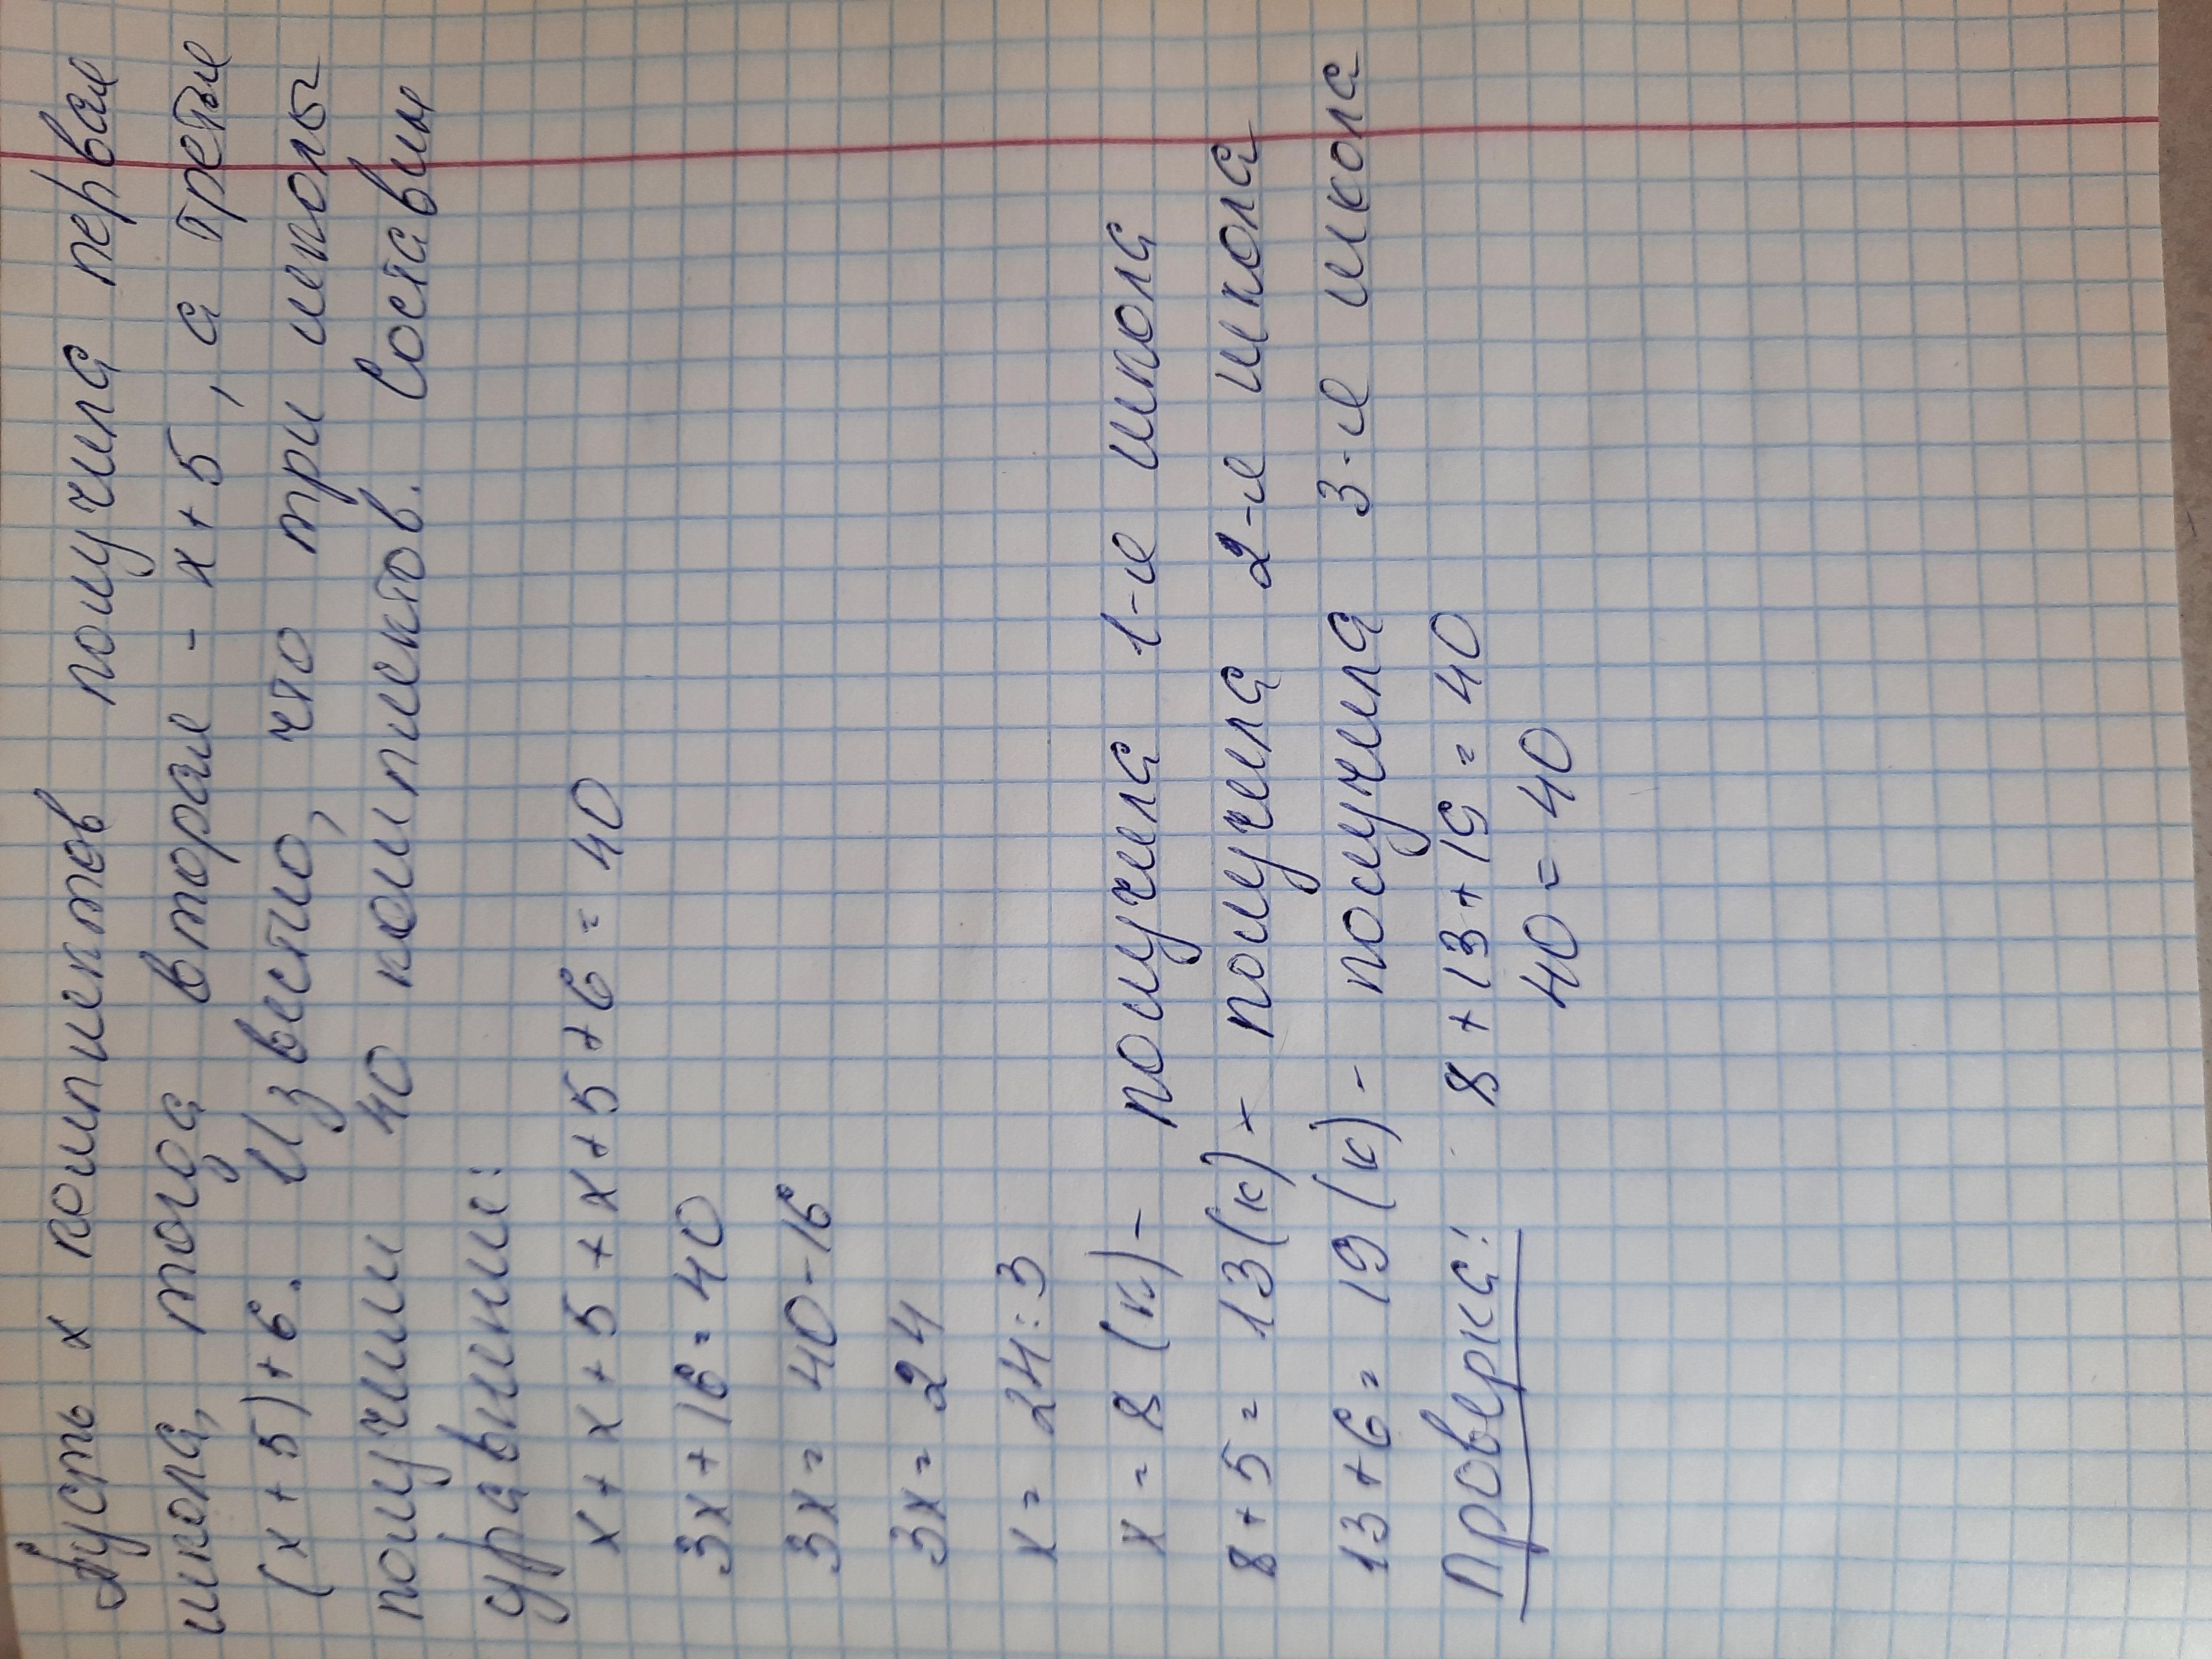 Пусть х комплектов получила первая
школа, тогда вторая - х + 5, а третья
(х + 5) + 6. Известно, что три школы
получили 40 комплектов. Составим
уравнение:
х + х + 5 + х + 5 + 6 = 40
3х + 16 = 40
3х = 40 - 16
3х = 24
х = 24 : 3
х = 8 (к) - получила 1-я школа
8 + 5 = 13 (к) - получила 2-я школа
13 + 6 = 19 (к) - получила 3-я школа
Проверка: 8 + 13 + 19 = 40
40 = 40